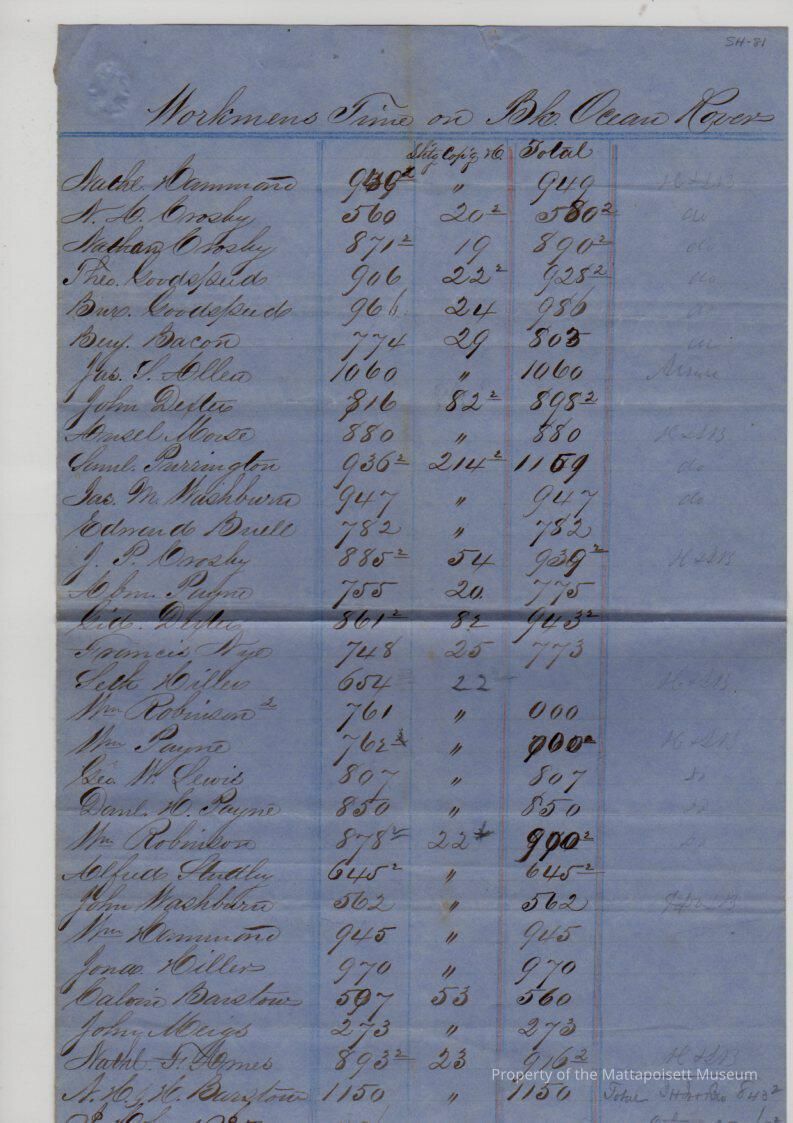 SH-81
Workmens Time on Bk. Ocean Rover
Copg H. Total
Nathl. Hammond 949
N. H. Crosby 560 20² 580²
Nathan Crosby 871² 19 890²
Theo. Goodspeed 906 22² 928²
Goodspeed 966 24 986
Benj. Bacon 774 29 803
Jas. S. Allen 1060 " 1060
John Dexter 816 82² 898²
Ansel Morse 880 " 880
Saml. Purrington 936² 214² 1159 do
Jas. M. Washburn 947 " 947 do
Edward Buell 782 " 782
J. P. Crosby 885² 54 939²
Payne 755 20 775
Gid. Dexter 861² 82 943²
Francis Nye 748 25 773
Seth Hiller 654 22
Wm Robinson 2 761 " 000
Wm Payne 762 "
Geo W. Lewis 807 " 807
Danl. H. Payne 850 " 850
Wm Robinson 878² 22 900²
Alfred Studley 645² " 645²
John Washburn 562 " 562
Wm Hammond 945 " 945
Jona. Hiller 970 " 970
Calvin Barstow 507 53 560
John Meigs 273 " 273
Nathl. F. Ames 893² 23 916²
Property of the Mattapoisett Museum
N. H. & H. Barstow 1150 " 1150